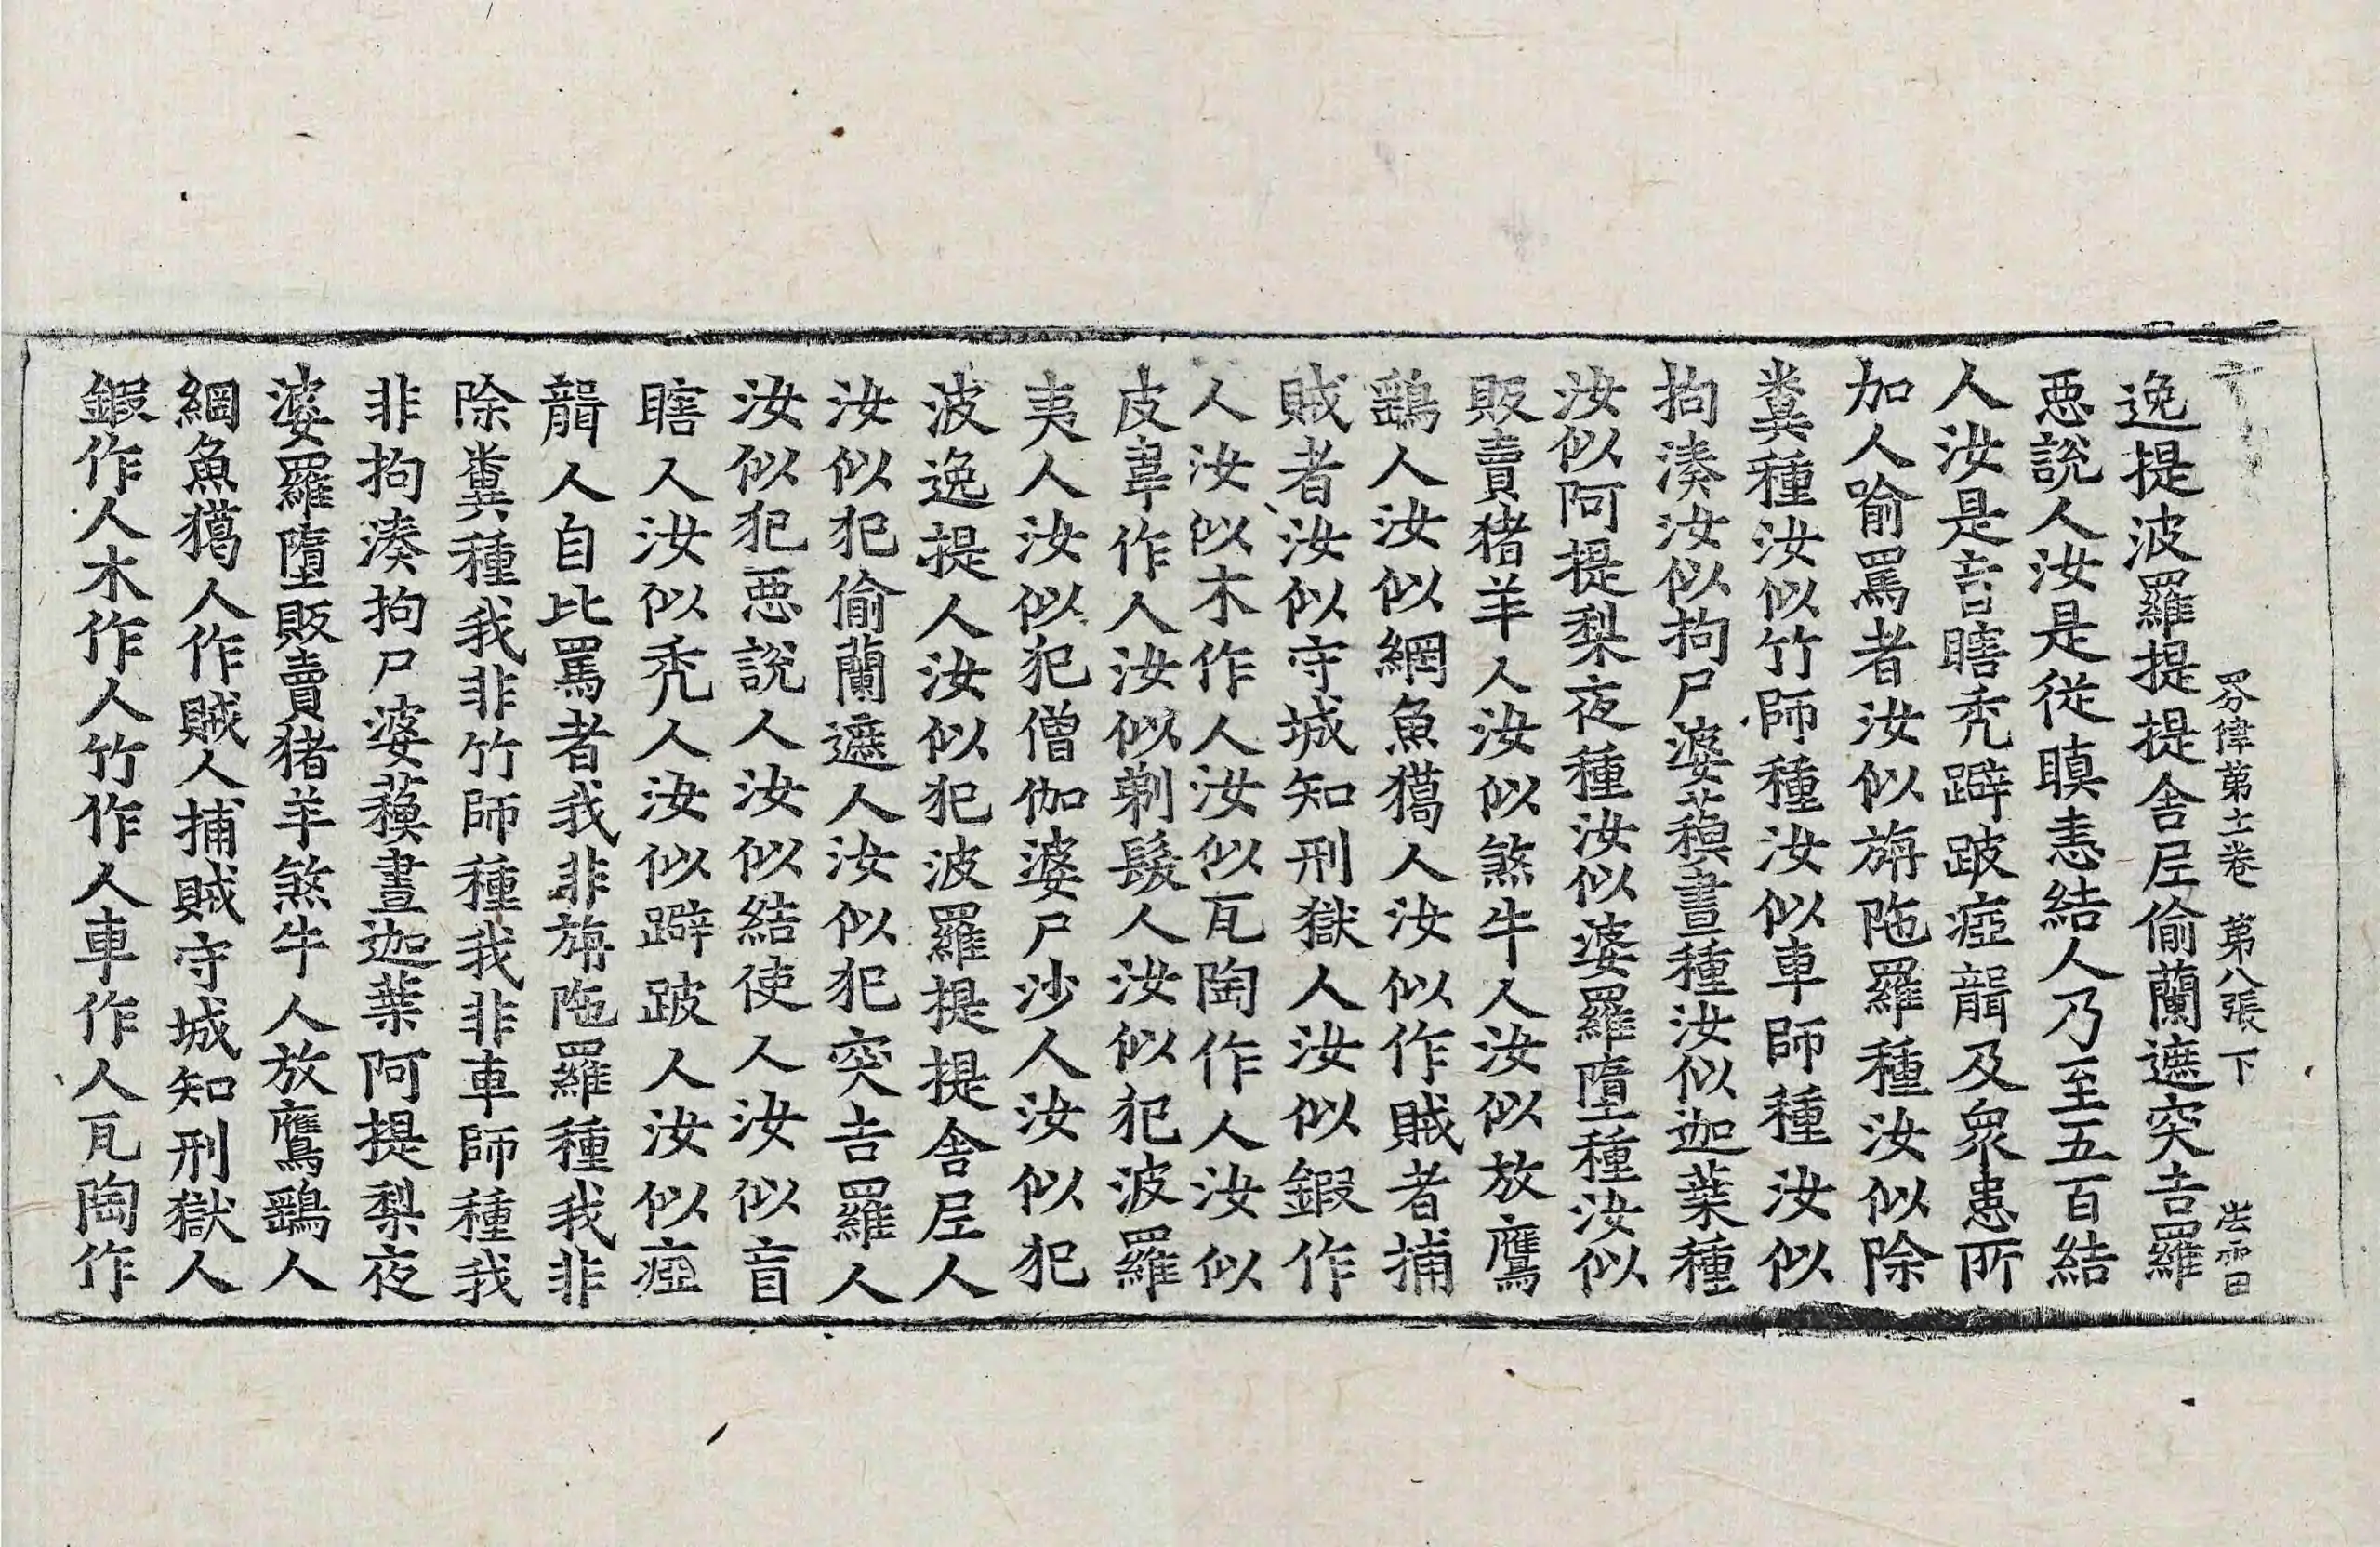 四分律第十一卷 第八張 下
逸提波羅提提舍尼偷蘭遮突吉羅
惡說人汝是從瞋恚結人乃至五百結
人汝是盲瞎禿躃跛瘂聾及眾患所
加人喻罵者汝似旃陁羅種汝似除
糞種汝似竹師種汝似車師種汝似
拘湊汝似拘尸婆蘓晝種汝似迦葉種
汝似阿提梨夜種汝似婆羅墮種汝似
販賣猪羊人汝似煞牛人汝似放鷹
鷂人汝似網魚獦人汝似作賊者捕
賊者汝似守城知刑獄人汝似鍜作
人汝似木作人汝似瓦陶作人汝似
皮韋作人汝似剃髮人汝似犯波羅
夷人汝似犯僧伽婆尸沙人汝似犯
波逸提人汝似犯波羅提提舍尼人
汝似犯偷蘭遮人汝似犯突吉羅人
汝似犯惡說人汝似結使人汝似盲
瞎人汝似禿人汝似躃跛人汝似瘂
聾人自比罵者我非旃陁羅種我非
除糞種我非竹師種我非車師種我
非拘湊拘尸婆蘓晝迦葉阿提梨夜
婆羅墮販賣猪羊煞牛人放鷹鷂人
網魚獦人作賊人捕賊守城知刑獄人
鍜作人木作人竹作人車作人瓦陶作